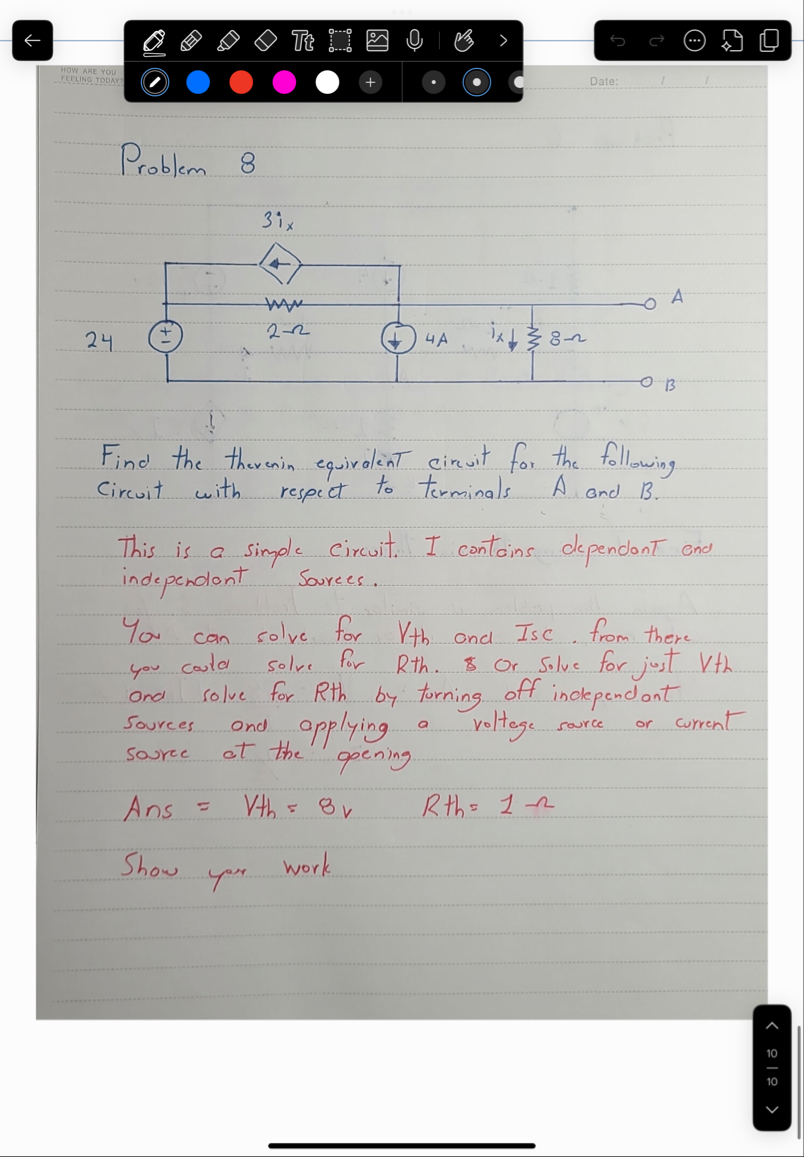 Tt
HOW ARE YOU
FEELING TODAY?
Date: / /
Problem 8
3ix
A
2Ω
24
4A
ix
8Ω
B
Find the thevenin equivalent circuit for the following
Circuit with respect to terminals A and B.
This is a simple circuit. I contains dependant and
independant sources.
You can solve for Vth and Isc. from there
you could solve for Rth. Or solve for just Vth
and solve for Rth by turning off independant
sources and applying a voltage source or current
source at the opening
Ans = Vth = 8v Rth = 1Ω
Show your work
10
10